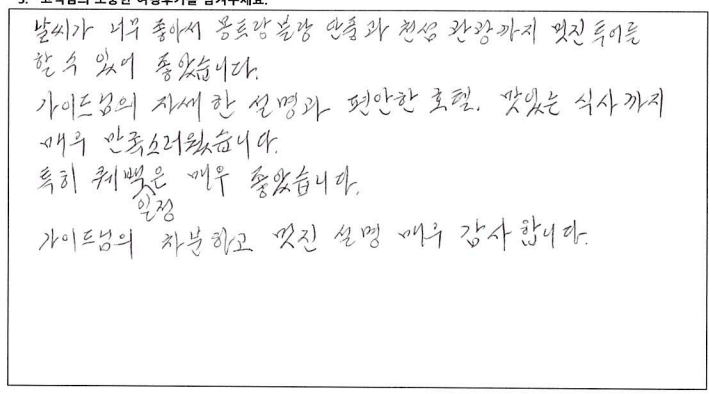 3. 고객님의 소중한 여행후기를 남겨주세요.
날씨가 너무 좋아서 몽트랑블랑 단풍과 천섬 관광까지 멋진 투어를
할 수 있어 좋았습니다.
가이드님의 자세한 설명과 편안한 호텔, 맛있는 식사까지
매우 만족스러웠습니다.
특히 퀘백은 매우 좋았습니다.
일정
가이드님의 차분하고 멋진 설명 매우 감사합니다.